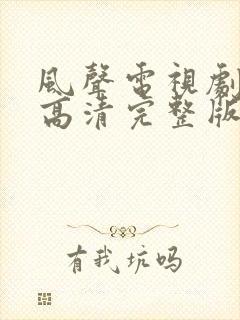 風聲電視劇
高清完整版
有我坑吗